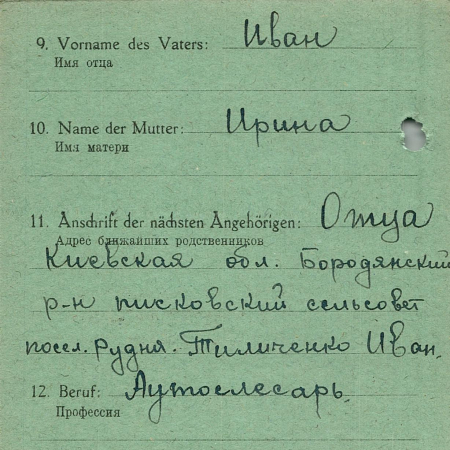 9. Vorname des Vaters: Иван
Имя отца
10. Name der Mutter: Ирина
Имя матери
11. Anschrift der nächsten Angehörigen: Отца
Адрес ближайших родственников
Киевская обл. Бородянский
р-н писковский сельсовет
посел. Рудня. Тиличенко Иван.
12. Beruf: Аутослесарь.
Профессия